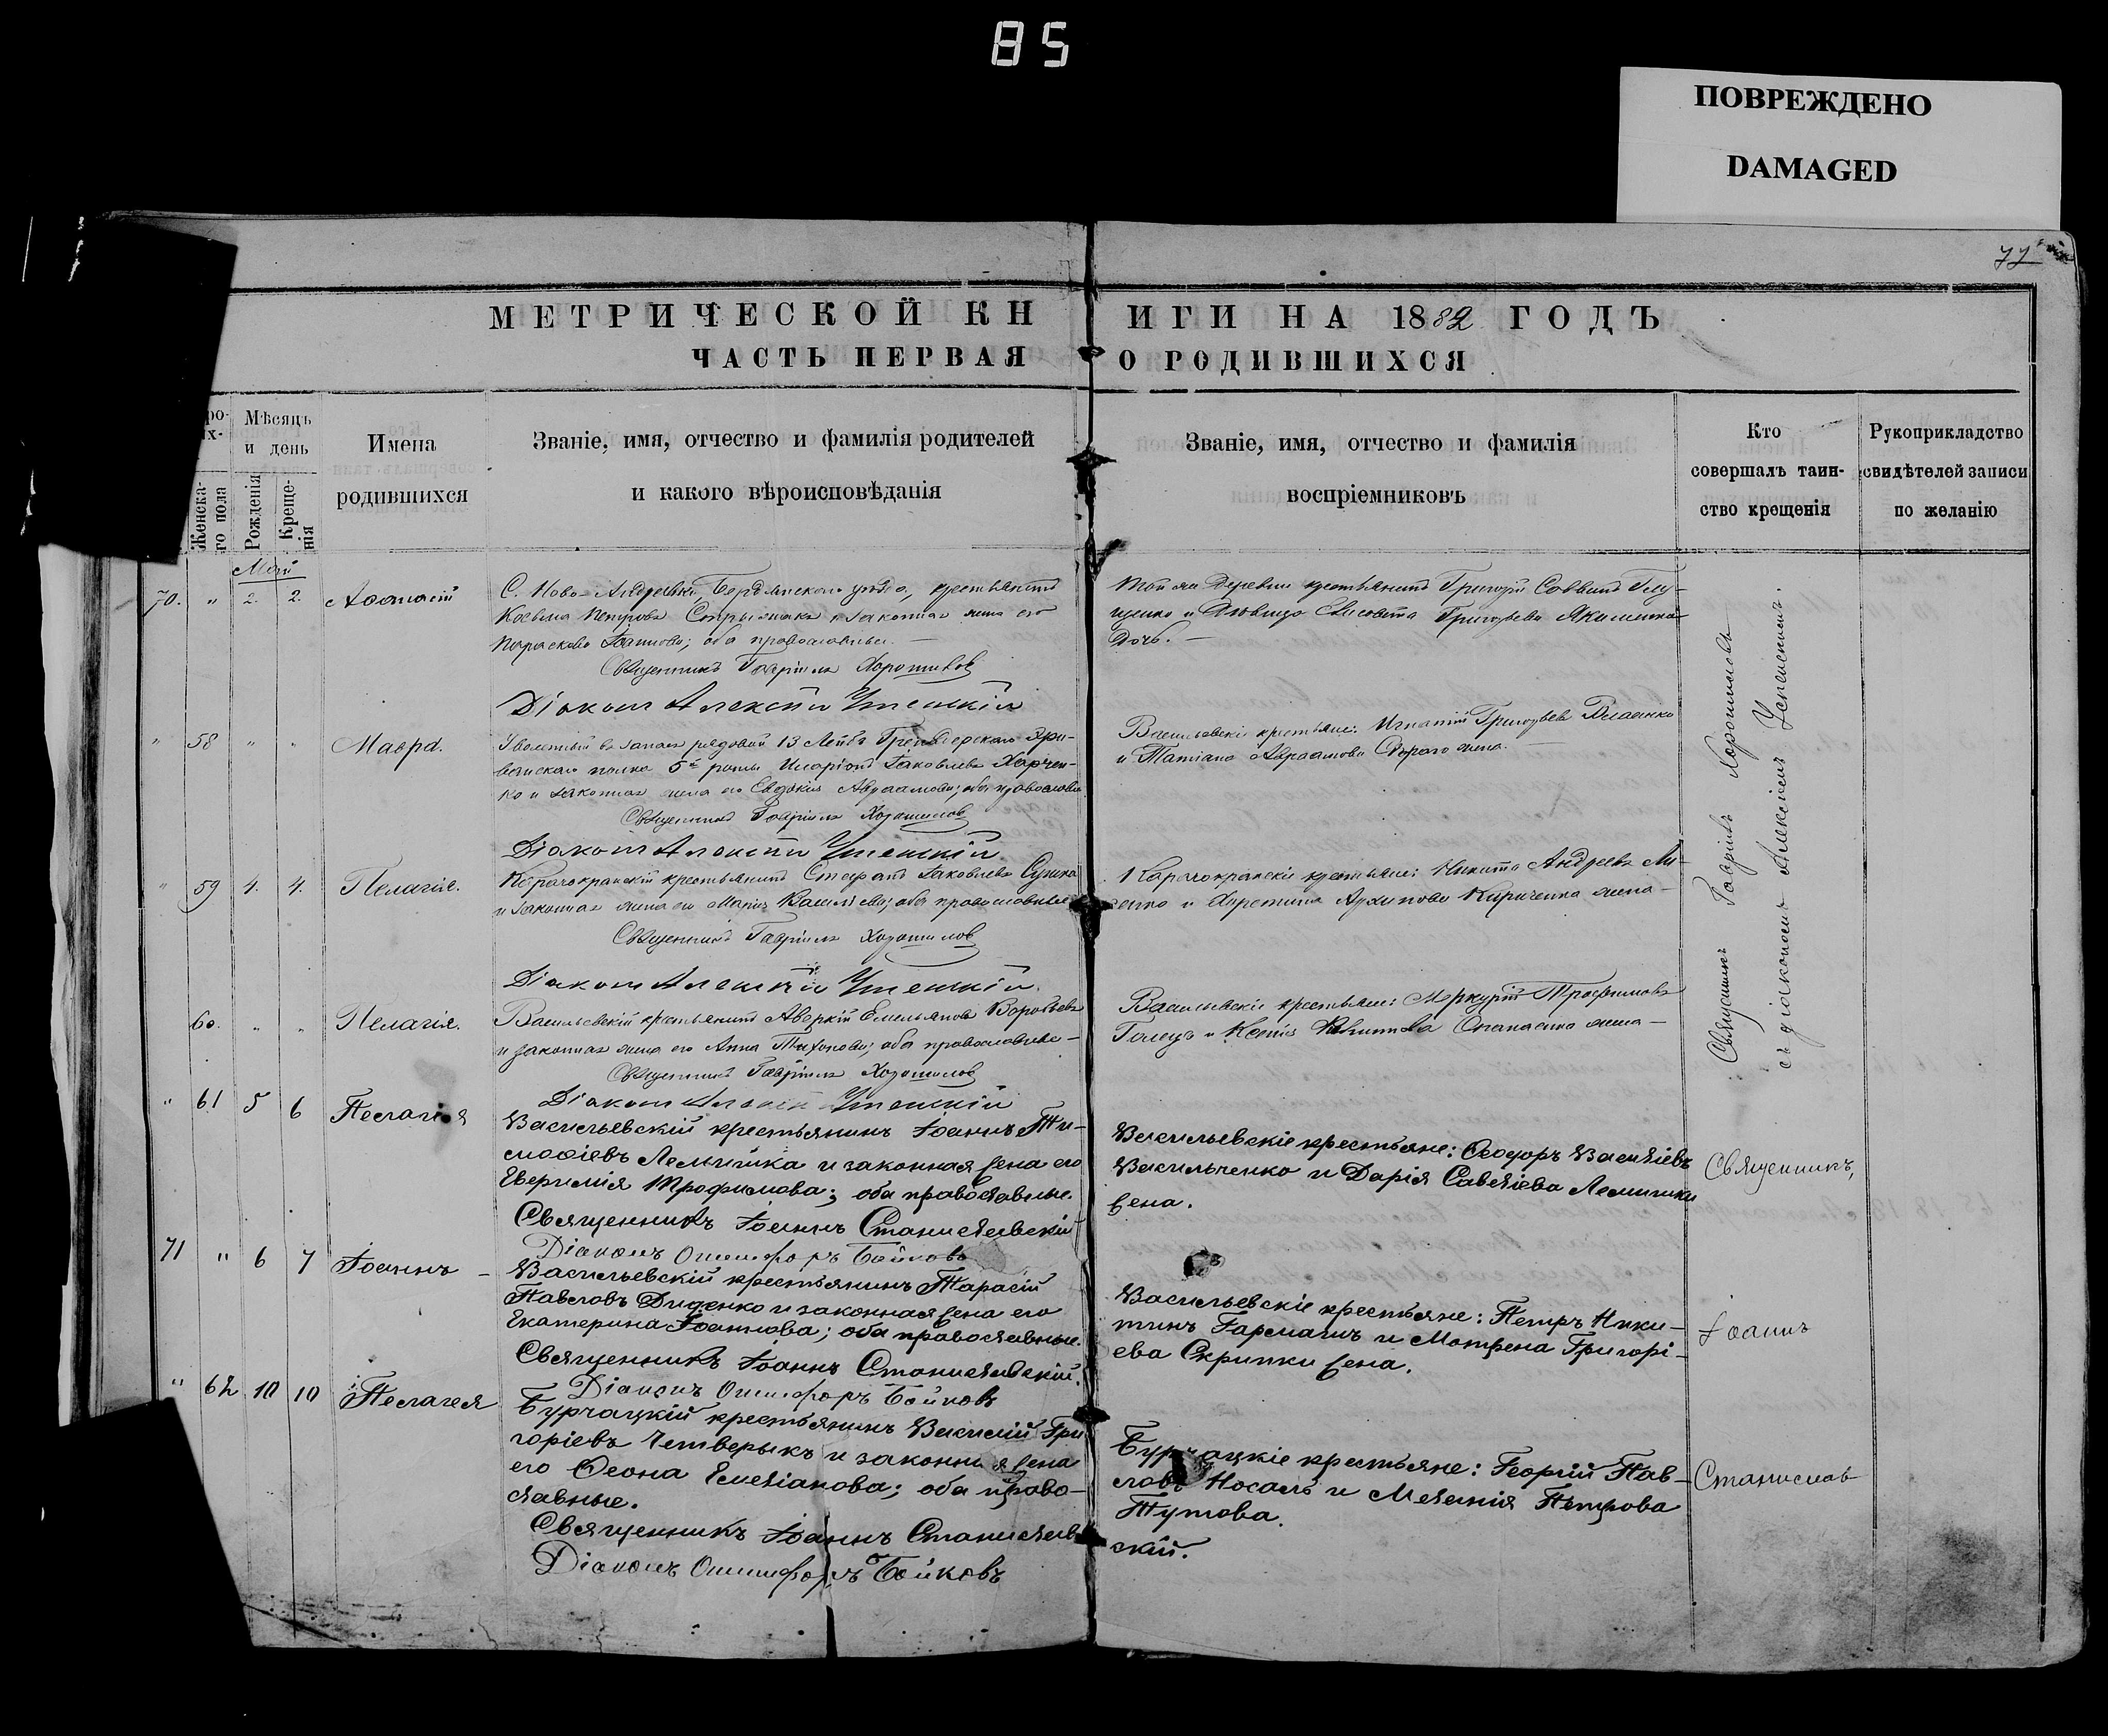 85
ПОВРЕЖДЕНО
DAMAGED
77
МЕТРИЧЕСКОЙ КНИГИ НА 1882 ГОДЪ
ЧАСТЬ ПЕРВАЯ О РОДИВШИХСЯ
Мѣсяцъ и день
Женска-го пола
Рожденія
Креще-нія
Имена родившихся
Званіе, имя, отчество и фамилія родителей
и какого вѣроисповѣданія
Званіе, имя, отчество и фамилія
воспріемниковъ
Кто
совершалъ таин-
ство крещенія
Рукоприкладство
свидѣтелей записи
по желанію
Май
70. " 2. 2.
С. Ново-Андреевки, Бердянскаго уѣзда, крестьянинъ
Косьма Петровъ и законная жена его
Параскева Іоаннова; оба православные.
Священникъ Гавріилъ Хорошиловъ
Діаконъ Алексій Успенскій
деревни крестьянинъ Григорій Саввинъ Глу-
щенко и дѣвица Елисавета Григорьева Якименкова
дочь.
" 58 " " Мавра.
Уволенный въ запасъ рядовой 13 Лейбъ Гренадерскаго Эри-
ванскаго полка 5й роты Иларіонъ Іаковлевъ Харчен-
ко и законная жена его Евдокія Авраамова; оба православные
Священникъ Гавріилъ Хорошиловъ
Діаконъ Алексій Успенскій.
Васильевскіе крестьяне: Игнатій Григорьевъ Власенко
и Татіана Авраамова жена.
" 59 4. 4. Пелагія.
Карачокракскій крестьянинъ Стефанъ Іаковлевъ
и законная жена его Марія Васильева; оба православные
Священникъ Гавріилъ Хорошиловъ
Діаконъ Алексій Успенскій.
Карачокракскіе крестьяне: Никита Андреевъ
и Архипова Кириченка жена
60. " " Пелагія.
Васильевскій крестьянинъ Аверкій Емельяновъ Воробьевъ
и законная жена его Анна Тихонова; оба православные
Священникъ Гавріилъ Хорошиловъ
Діаконъ Алексій Успенскій
Васильевскіе крестьяне: Меркурій Трофимовъ
и Ксенія Никитова Опанасенка жена
Священникъ Гавріилъ Хорошиловъ
съ діакономъ Алексіемъ Успенскимъ.
" 61 5 6 Пелагія
Васильевскій крестьянинъ Іоаннъ Ти-
моѳіевъ Лемишка и законная жена его
Евфимія Трофимова; оба православные.
Священникъ Іоаннъ Станиславскій
Діаконъ Онисифоръ Бойковъ
Васильевскіе крестьяне: Ѳеодоръ Василіевъ
Васильченко и Дарія Савеліева Лемишки
жена.
Священникъ,
71 " 6 7 Іоаннъ
Васильевскій крестьянинъ Тарасій
Павловъ Диденко и законная жена его
Екатерина Іоаннова; оба православные.
Священникъ Іоаннъ Станиславскій.
Діаконъ Онисифоръ Бойковъ
Васильевскіе крестьяне: Петръ Ники-
тинъ Гармашъ и Мотрена Григорі-
ева Скрипки жена.
Іоаннъ
" 62 10 10 Пелагея
Бурчацкій крестьянинъ Василій Гри
горіевъ Четверыкъ и законная жена
его Ѳеона Емеліанова; оба право-
славные.
Священникъ Іоаннъ Станиславскій.
Діаконъ Онисифоръ Бойковъ
Бурчацкіе крестьяне: Георгій Пав-
ловъ Носаль и Меланія Петрова
Тутова.
Станислав